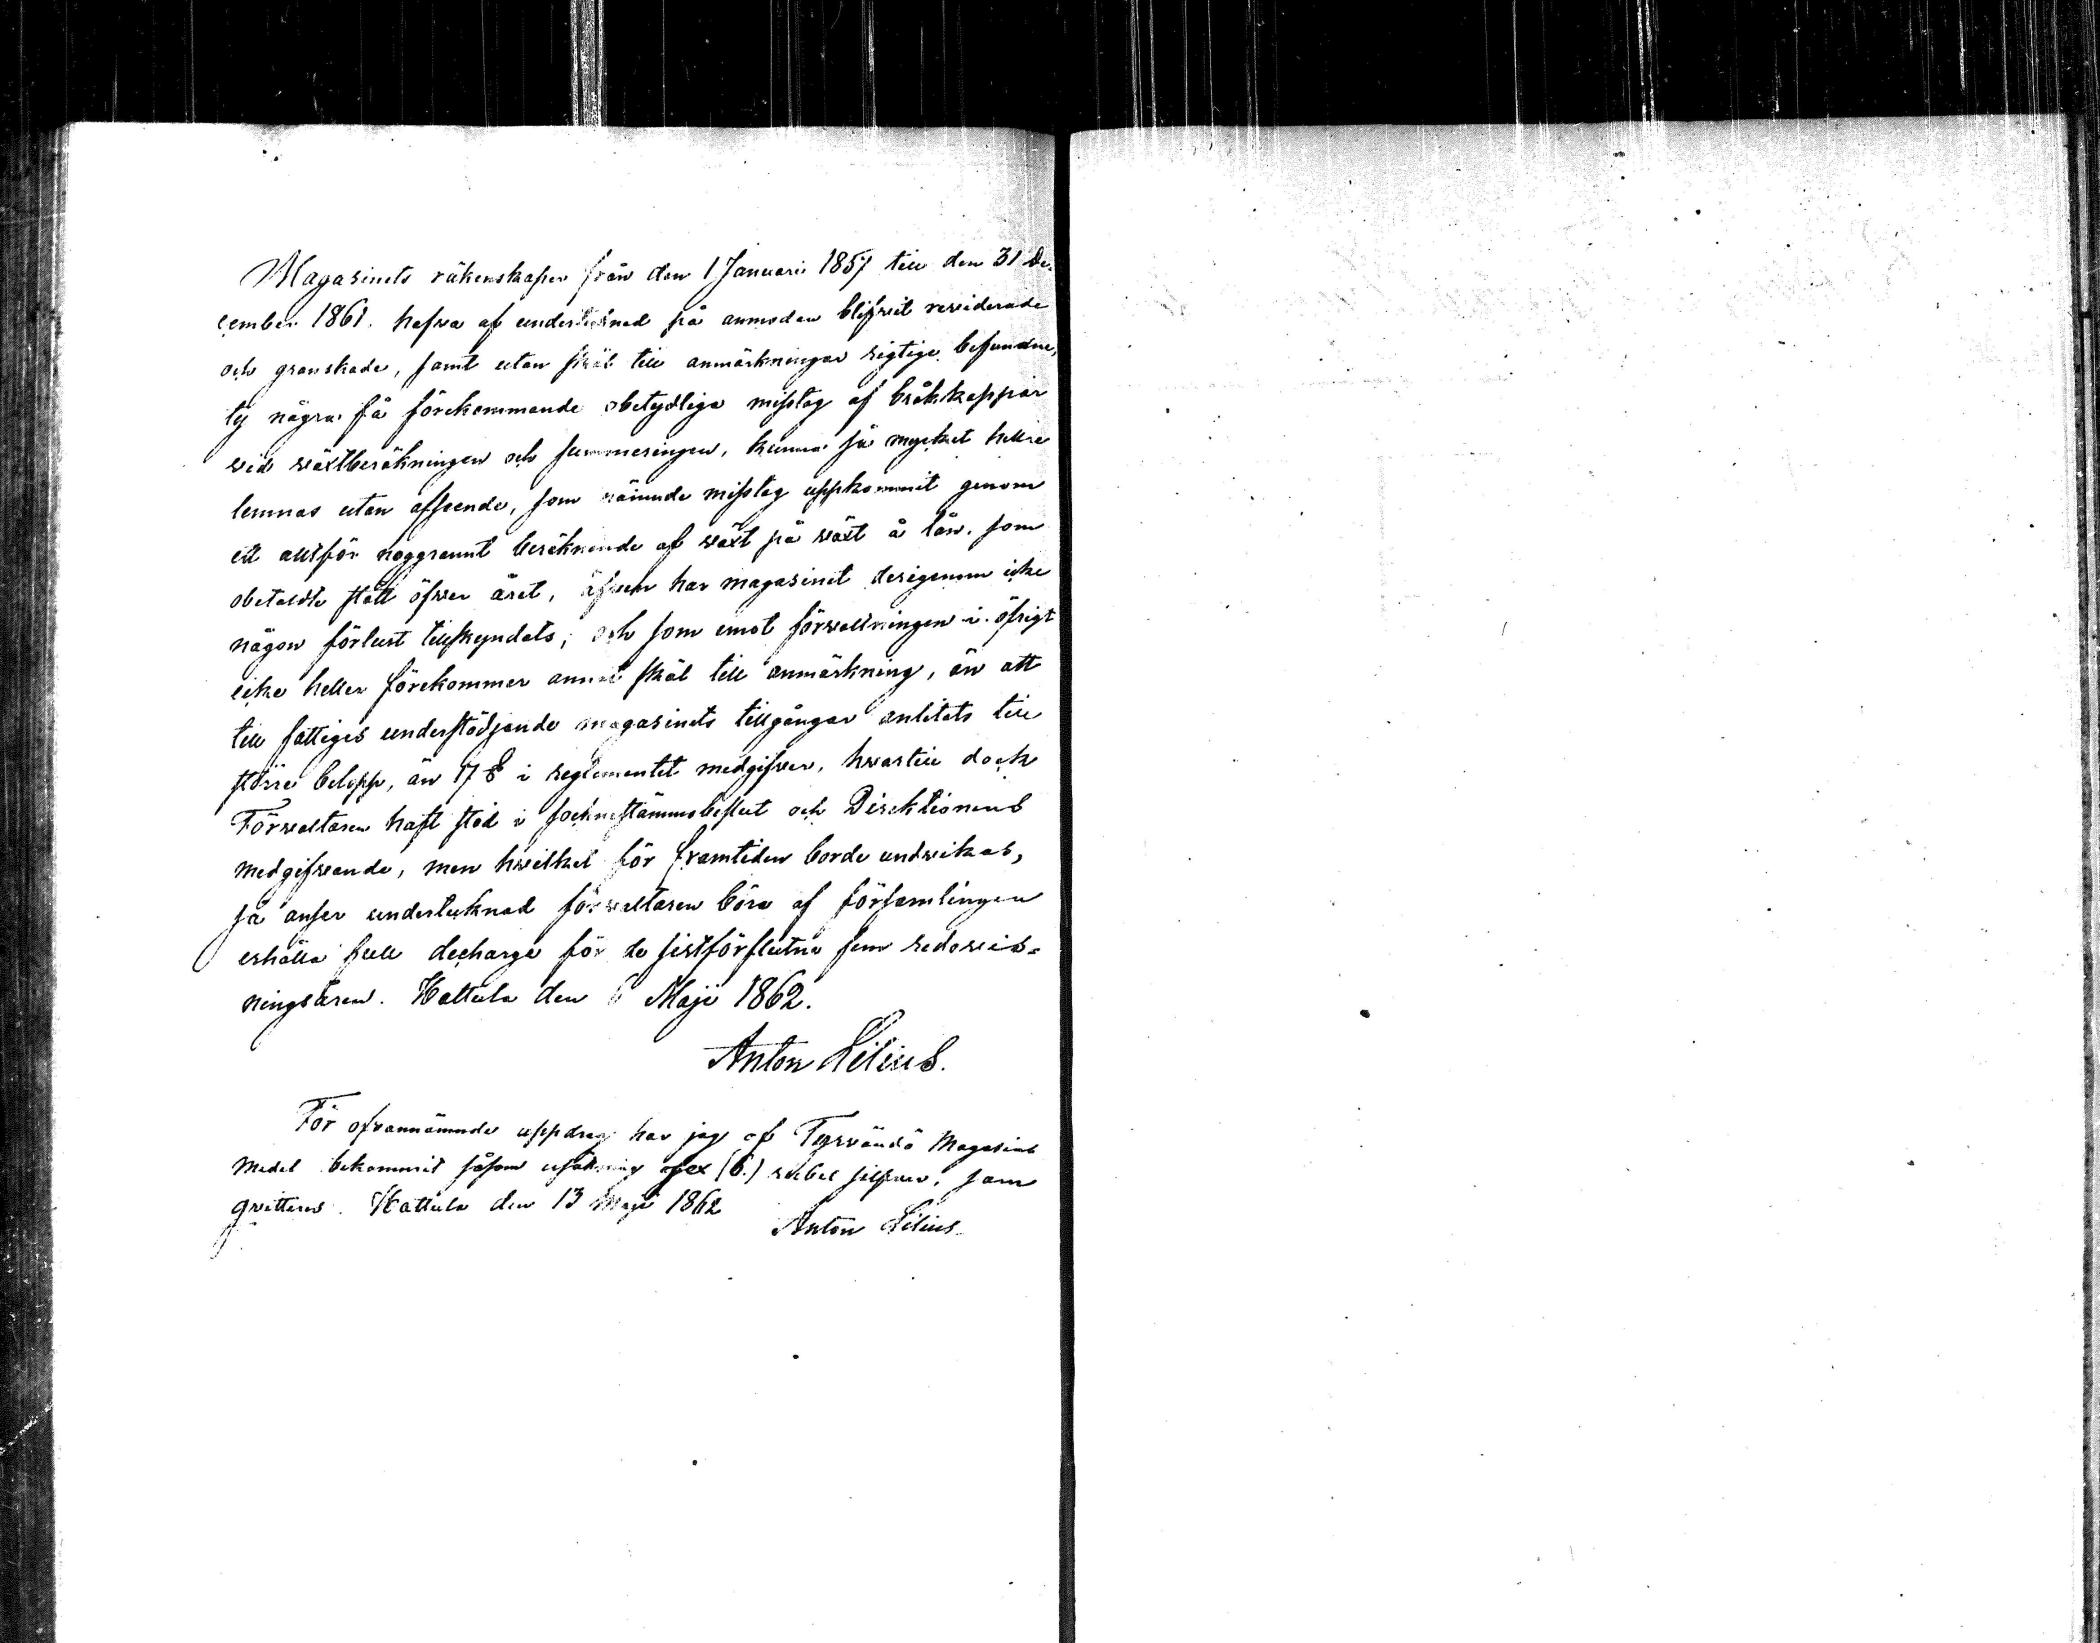 Magasinets räkenskaper från den 1 Januari 1857 till den 31 De-
cember 1861. hafva af undertecknad på anmodan blifvit reviderade
och granskade, samt utan skäl till anmärkningar rigtige befundne,
ty några få förekommande obetydliga misstag af bråkkappar
vid växtberäkningen och summeringen, kunna så mycket hellre
lemnas utan afseende, som nämnde misstag uppkommit genom
ett alltför noggrannt beräknande af växt på växt å lån, som
obetaldte stått öfver året, äfven har magasinet derigenom icke
någon förlust tillskyndats; och som emot förvaltningen i öfrigt
icke heller förekommer annat skäl till anmärkning, än att
till fattiges understödjande magasinets tillgångar anlitats till
större belopp, än 17 § i reglementet medgifver, hvartill dock
Förvaltaren haft stöd i sockenstämmobeslut och Direktionens
medgifvande, men hvilket för framtiden borde undvikas,
så anser undertecknad förvaltaren böra af församlingen
erhålla full decharge för de sistförflutna fem redovis-
ningsåren. Hattula den 6 Maji 1862.
Anton Lilius.
För ofvannämnde uppdrag har jag af Tyrvändö Magasins
medel bekommit såsom ersättning sex (6.) rubel silfver, som
qvitteras. Hattula den 13 Maji 1862
Anton Lilius